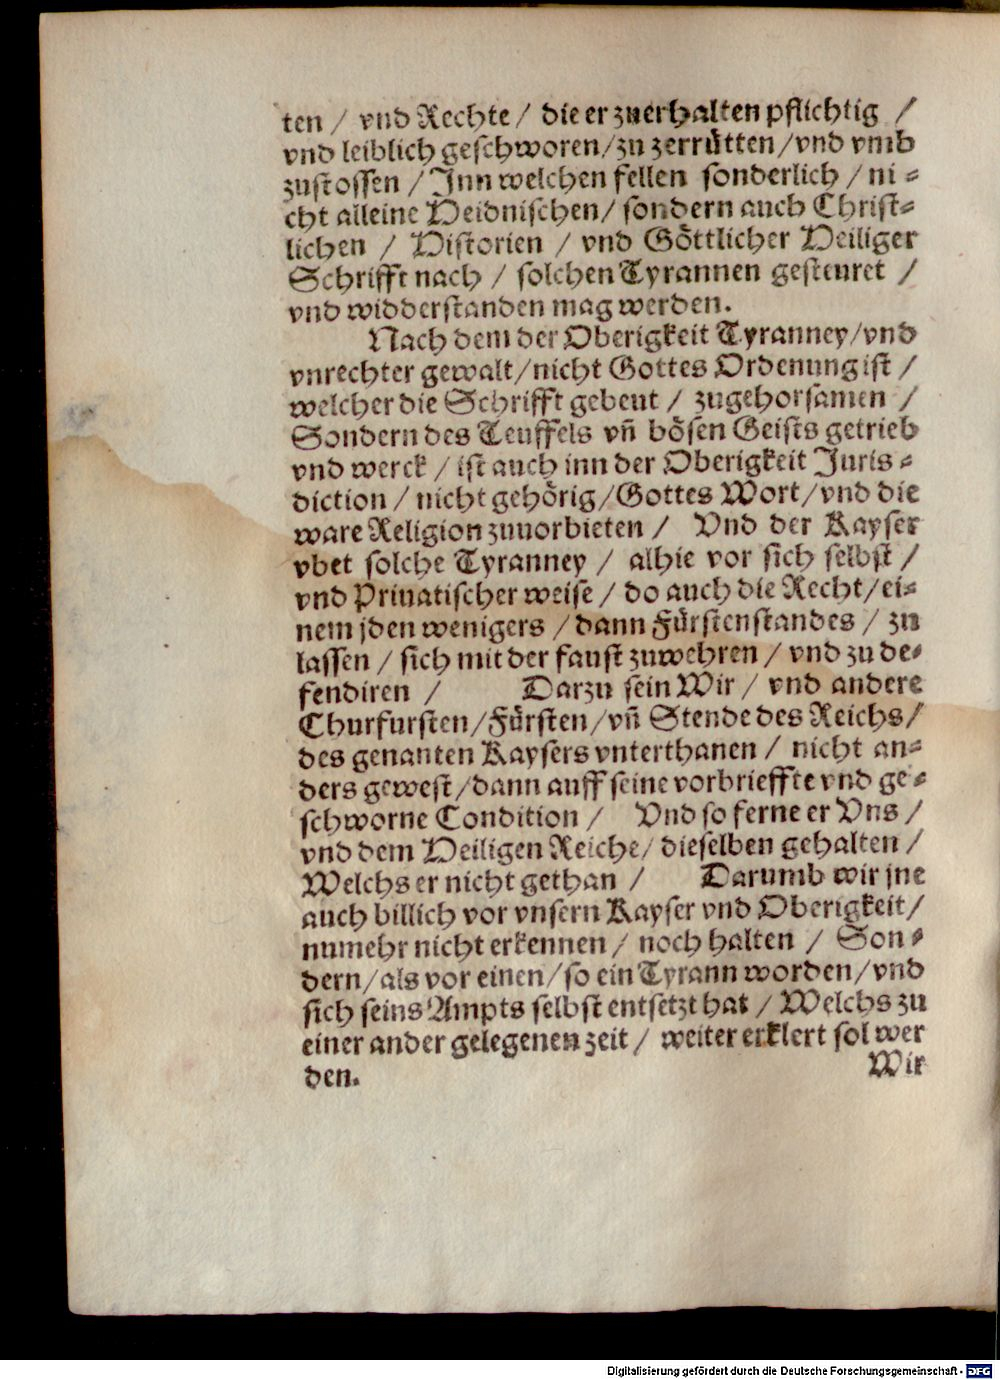 ten / vnd Rechte / die er zuerhalten pflichtig /
vnd leiblich geschworen/zu zerrütten/vnd vmb
zustossen / Inn welchen fellen sonderlich / ni⸗
cht alleine Heidnischen/ sondern auch Christ⸗
lichen / Historien / vnd Göttlicher Heiliger
Schrifft nach / solchen Tyrannen gesteuret /
vnd widderstanden mag werden.
Nach dem der Oberigkeit Tyranney/vnd
vnrechter gewalt/nicht Gottes Ordenung ist /
welcher die Schrifft gebeut / zugehorsamen /
Sondern des Teuffels vñ bösen Geists getrieb
vnd werck / ist auch inn der Oberigkeit Juris⸗
diction / nicht gehörig/Gottes Wort/vnd die
ware Religion zuuorbieten / Vnd der Kayser
vbet solche Tyranney / alhie vor sich selbst /
vnd Priuatischer weise / do auch die Recht/ei⸗
nem jden wenigers / dann Fürstenstandes / zu
lassen / sich mit der faust zuwehren / vnd zu de⸗
fendiren / Darzu sein Wir / vnd andere
Churfursten/Fürsten/vñ Stende des Reichs/
des genanten Kaysers vnterthanen / nicht an⸗
ders gewest/dann auff seine vorbrieffte vnd ge⸗
schworne Condition / Vnd so ferne er Vns /
vnd dem Heiligen Reiche/ dieselben gehalten /
Welchs er nicht gethan / Darumb wir jne
auch billich vor vnsern Kayser vnd Oberigkeit/
numehr nicht erkennen / noch halten / Son⸗
dern/als vor einen/so ein Tyrann worden/vnd
sich seins Ampts selbst entsetzt hat / Welchs zu
einer ander gelegenen zeit / weiter erklert sol wer
den.
Wir
Digitalisierung gefördert durch die Deutsche Forschungsgemeinschaft - DFG